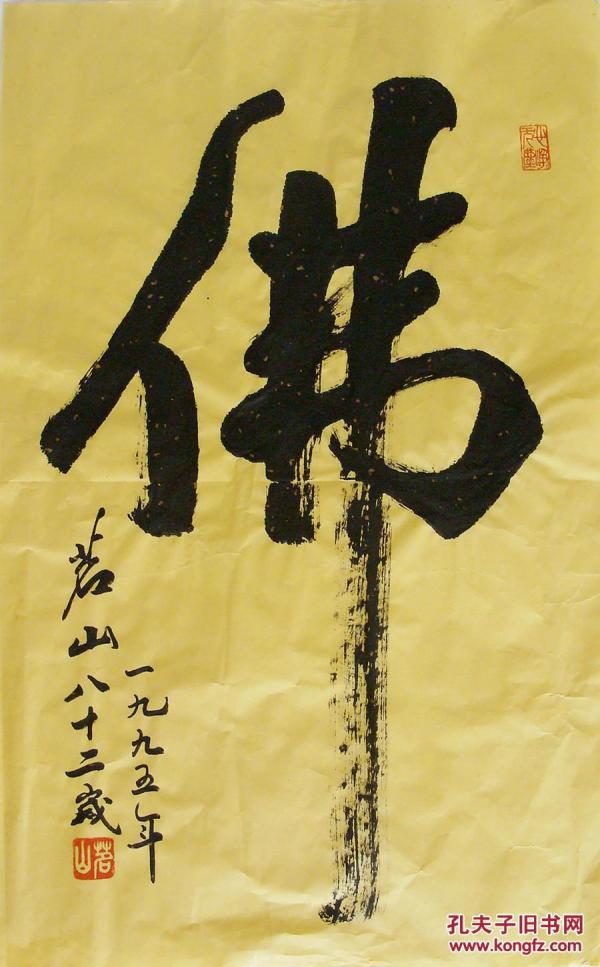 佛
一九九五年
茗山八十二岁
茗山
孔夫子旧书网
www.kongfz.com